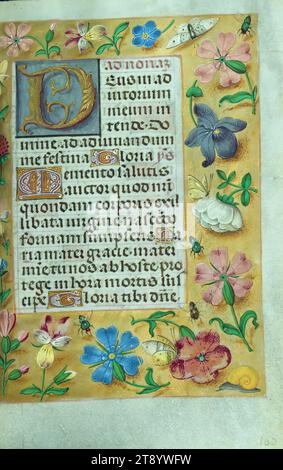 ad nonam
Deus in ad
iutorium
meum in
tende. Do
mine ad adiuuandum
me festina Gloria
Memento salutis
auctor quod nri
quondam corporis ex illi
libata uirgine nascendo
formam sumpseris Ma
ria mater gratie mater mi
e tu nos ab hoste pro
tege in hora mortis sus
cipe Gloria tibi dne
alamy